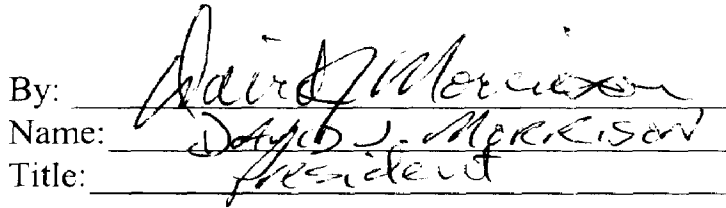 By: David J Morrison
Name: DAVID J. MORRISON
Title: President